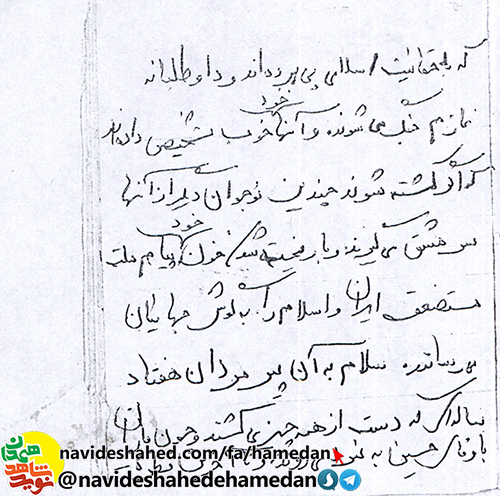 که به حقانیت اسلامی پی برده‌اند و داوطلبانه
عازم جنگ می شوند و آنها خود خوب تشخیص داده‌اند
که اگر کشته شوند چندین نوجوان دیگر از آنها
سرمشق می گیرند و با ریخته شدن خون خود پیام ملت
مستضعف ایران و اسلام را به گوش جهانیان
می رسانند. سلام به آن پیر مردان هفتاد
ساله‌ای که دست از همه چیز می کشند و چون یاران
با وفای حسین به
navideshahed.com/fa/hamedan
@navideshahedehamedan
نوید شاهد همدان